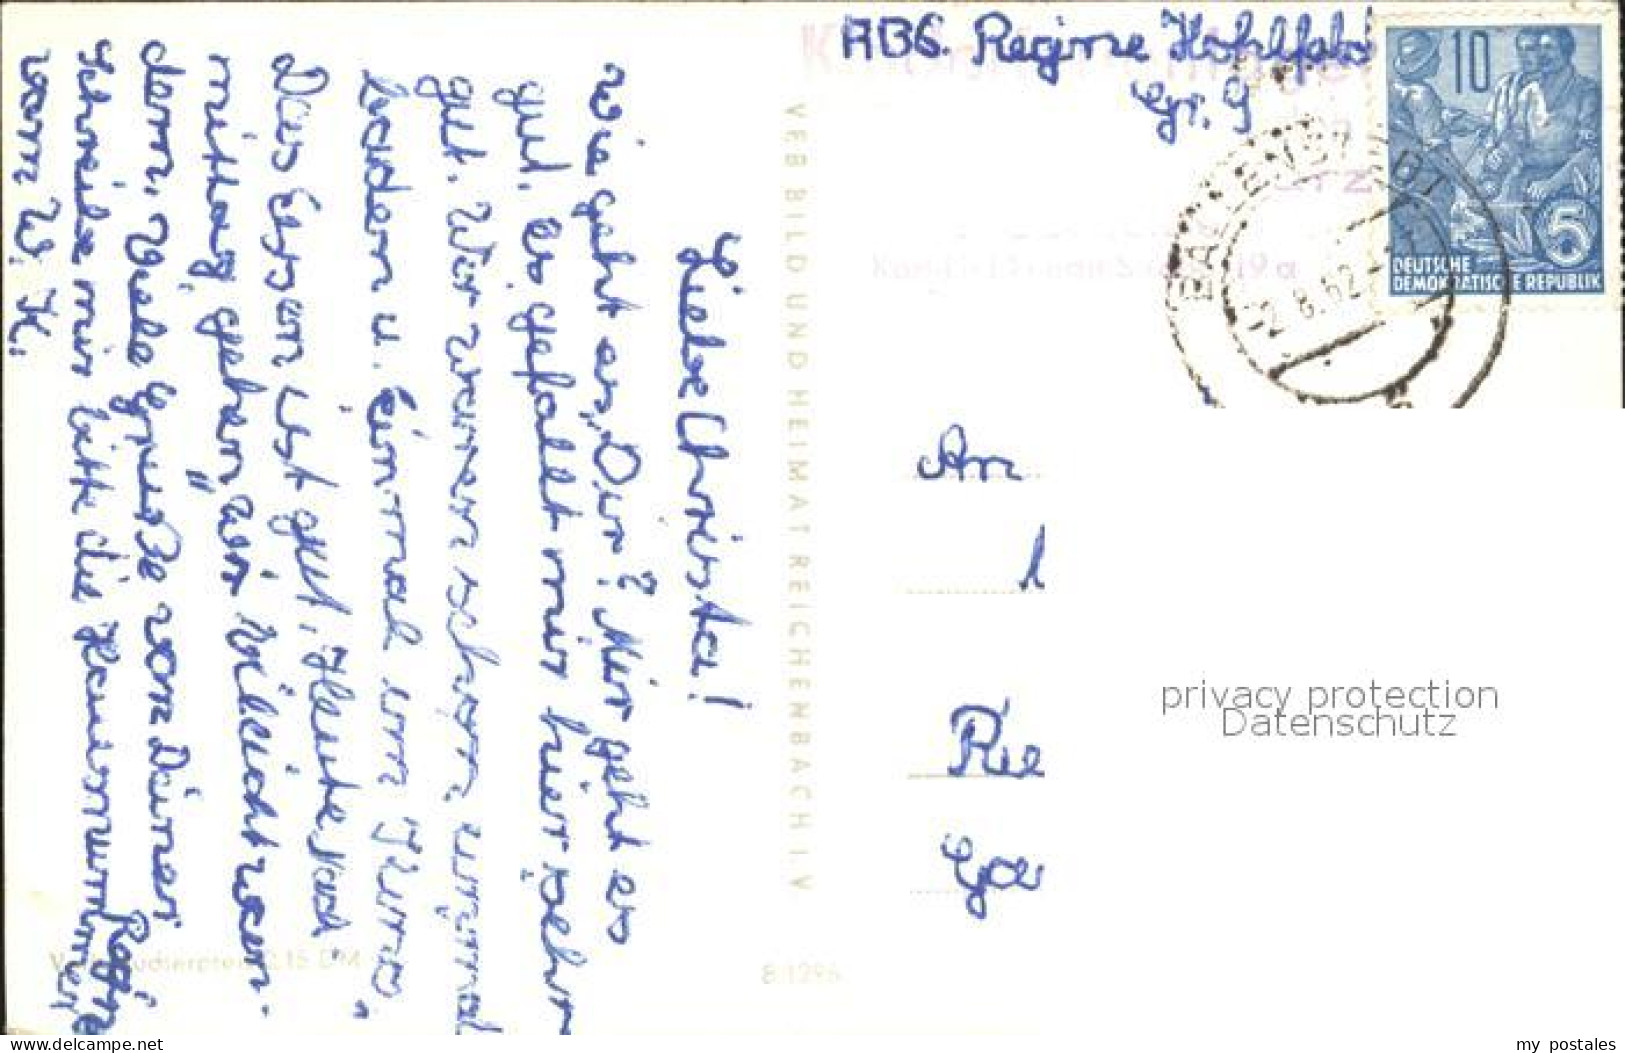 ABS. Regine Kohlfahr
10
5
DEUTSCHE
DEMOKRATISCHE REPUBLIK
BALLENSTEDT
2.8.62
19a
Liebe Christa!
Wie geht es Dir? Mir geht es
gut. Es gefällt mir hier sehr
gut. Wir waren schon einmal
baden u. Einmal im Kino.
Das Essen ist gut. Heute nach
mittag gehen wir
dern. Viele Grüße von Deiner
Schreibe mir bitte die Hausnummer
von W. K.
VEB BILD UND HEIMAT REICHENBACH I. V.
8 1296
An
Re
privacy protection
Datenschutz
www.delcampe.net
my_postales